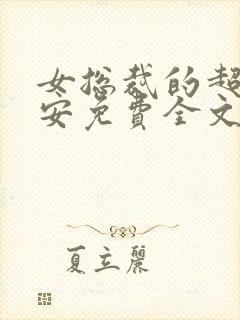 女总裁的超
安免費全文
夏立麗